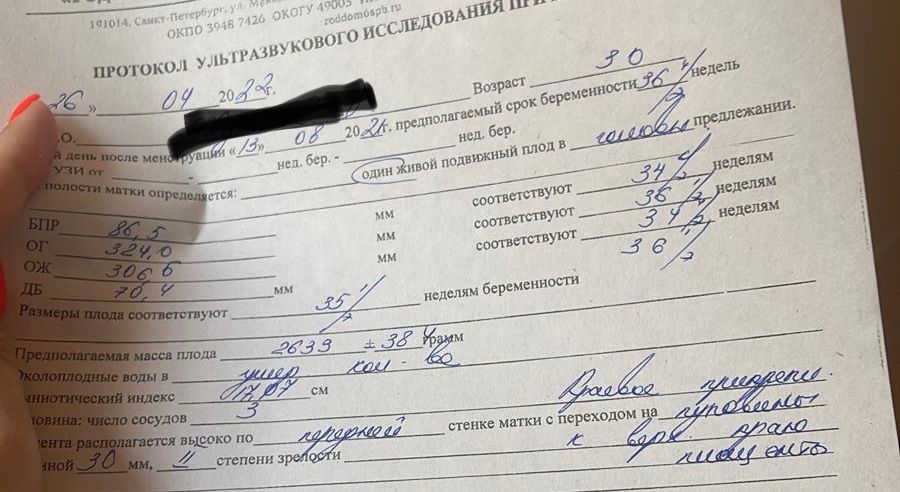 191014, Санкт-Петербург, ул.
ОКПО 3948 7426 ОКОГУ 49003
roddom6spb.ru
ПРОТОКОЛ УЛЬТРАЗВУКОВОГО ИССЛЕДОВАНИЯ ПРИ
26 » 04 2022 г. Возраст 30
.О.
й день после менструации «13» 08 202 г. предполагаемый срок беременности 36 4/7 недель
УЗИ от - нед. бер. - нед. бер.
полости матки определяется: один живой подвижный плод в головн предлежании.
БПР 86,5 мм соответствуют 34 /7 неделям
ОГ 324,0 мм соответствуют 36 /7 неделям
ОЖ 306,6 мм соответствуют 34 /7 неделям
ДБ 70,4 мм 36 /7
Размеры плода соответствуют 35 /7 неделям беременности
Предполагаемая масса плода 2639 ± 384 грамм
Околоплодные воды в умер кол-ве
мниотический индекс 17,07 см
повина: число сосудов 3
Краевое прикрепл.
пуповины
к верх. краю
плаценты
ента располагается высоко по передней стенке матки с переходом на
ной 30 мм, II степени зрелости